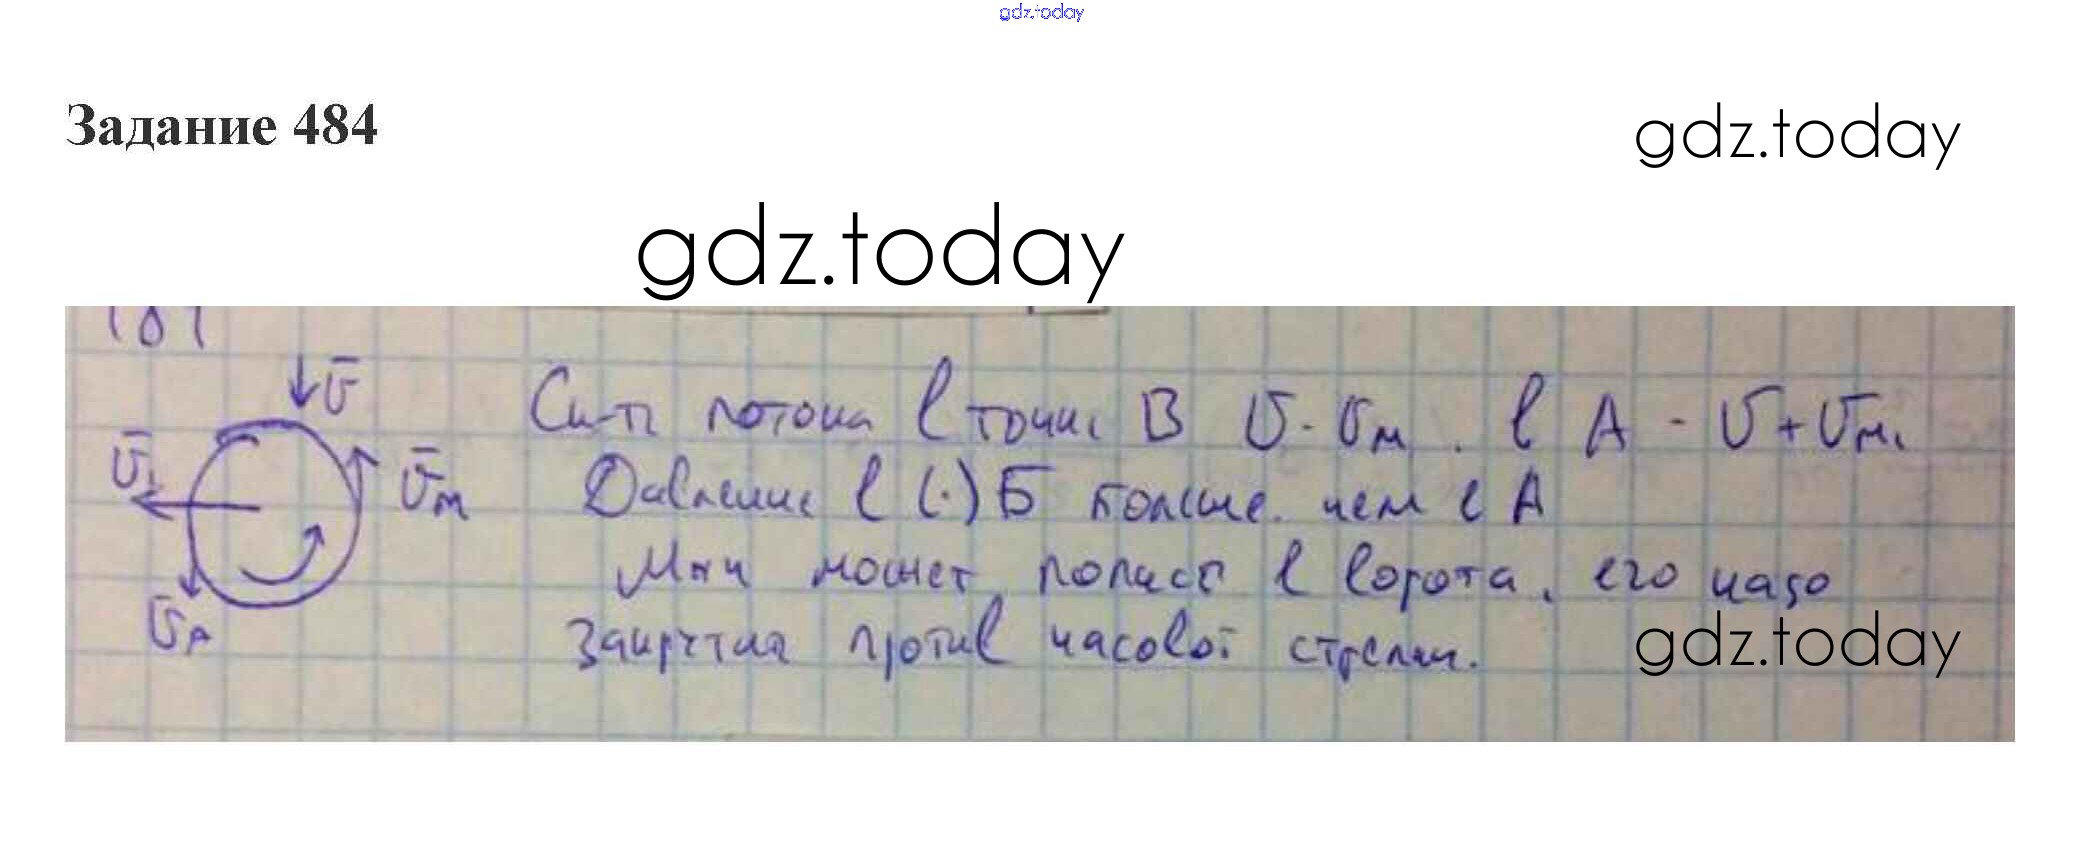 gdz.today
Задание 484
gdz.today
gdz.today
v̄
v̄м
v̄A
потока в точке В v - vм . в A - v + vм.
Давление в (·) Б больше чем в А
Мяч может попасть в ворота, его надо
закрутив против часовой стрелки.
gdz.today